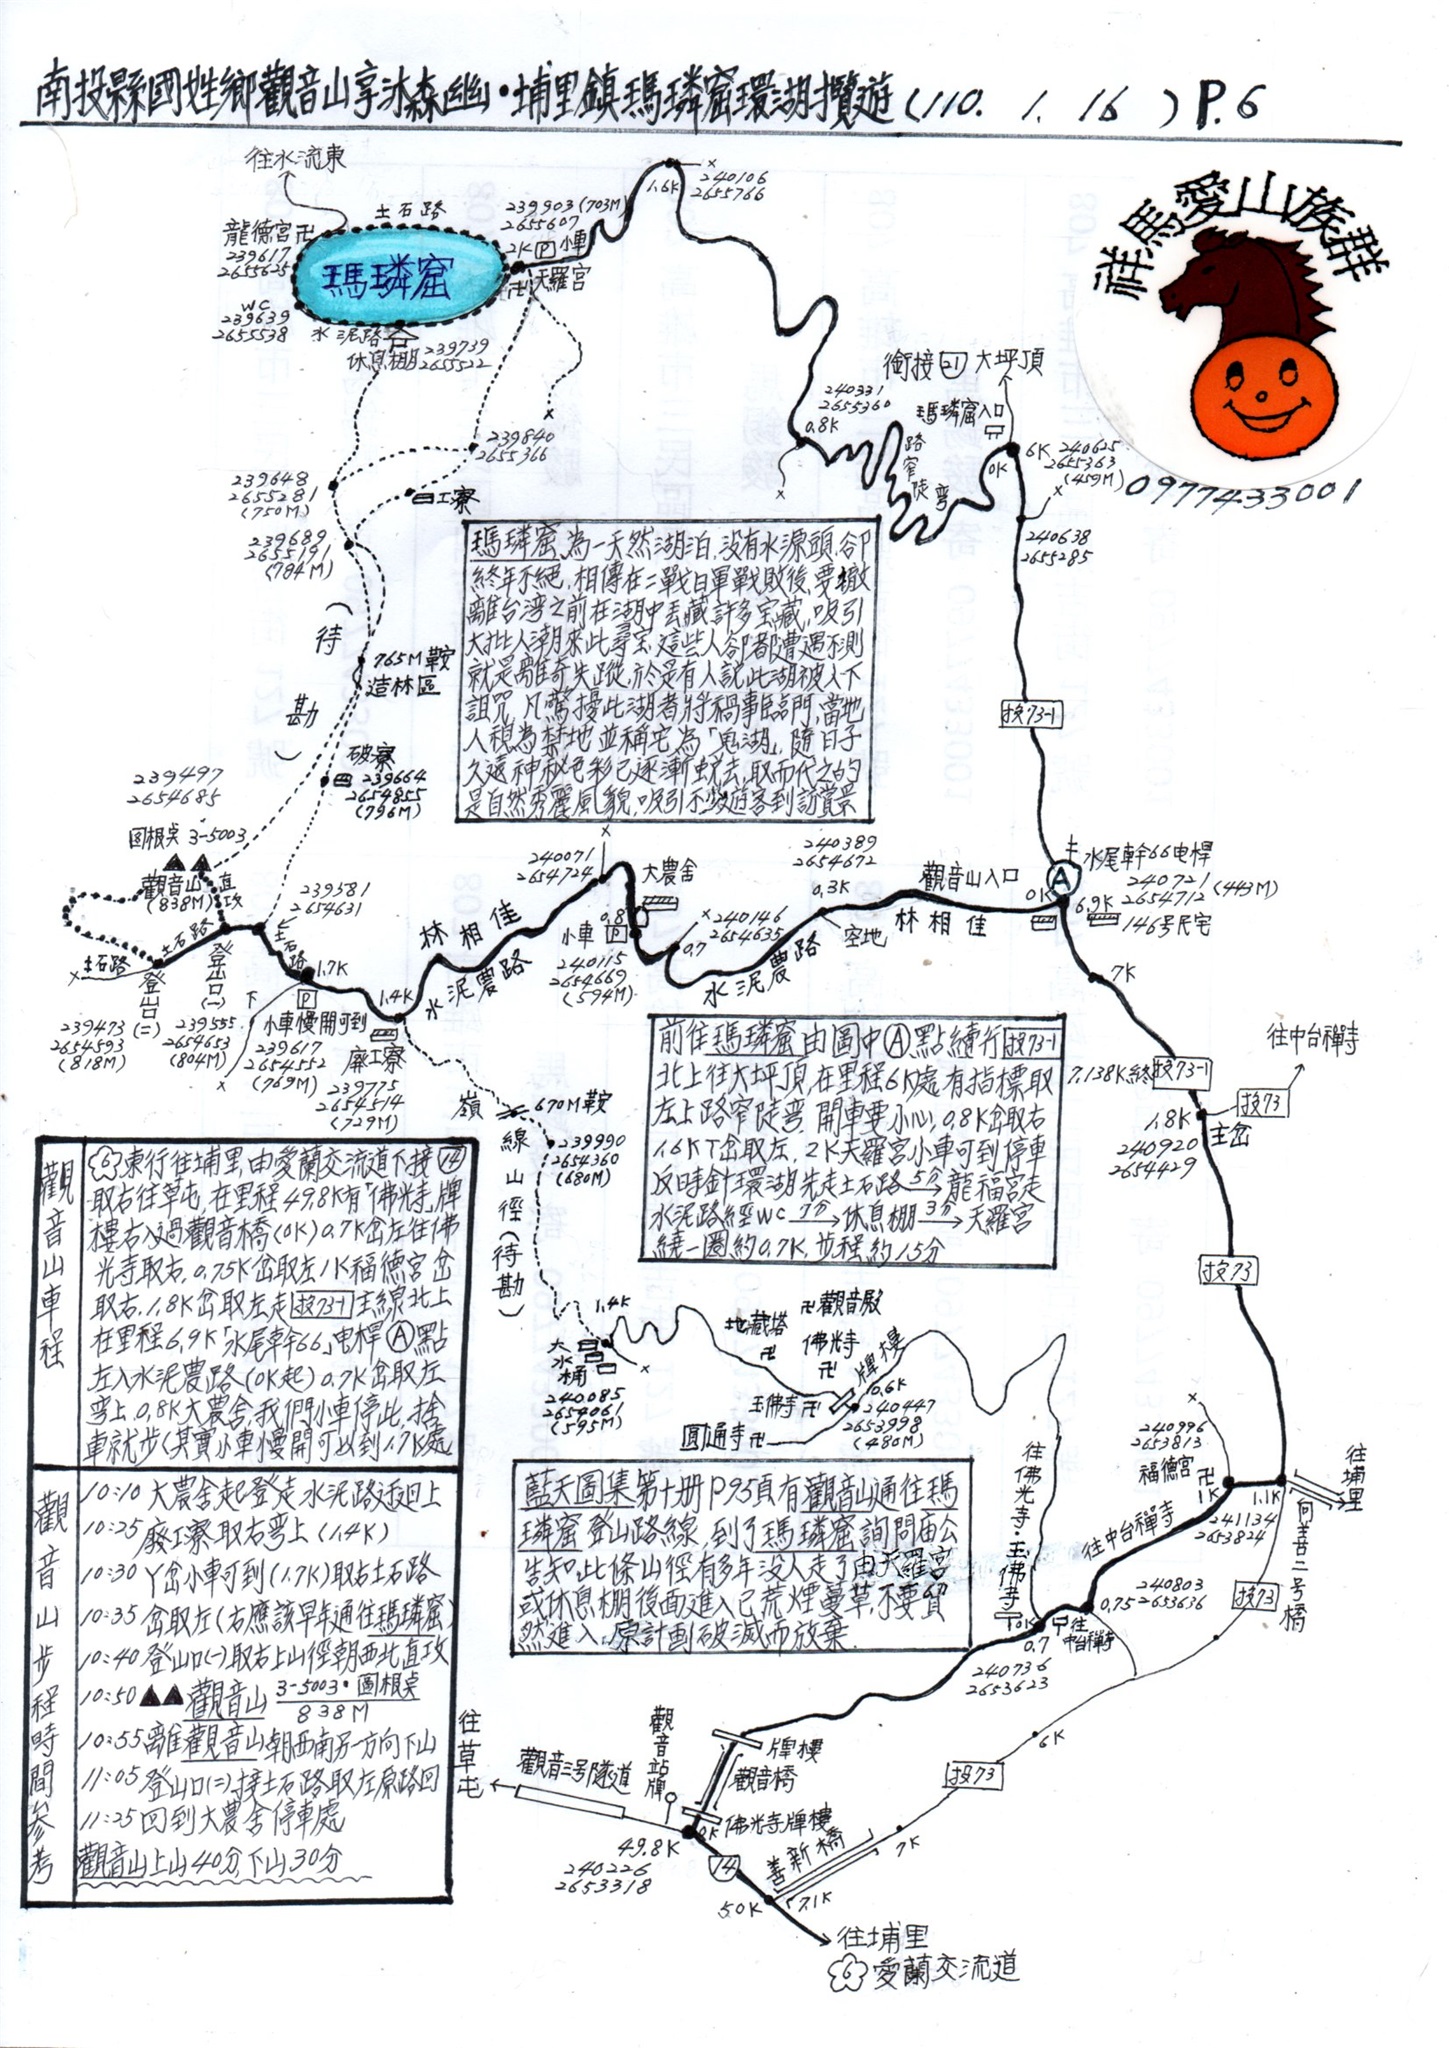 南投縣國姓鄉觀音山享沐森幽·埔里鎮瑪璘窟環湖攬遊(110. 1. 16 ) P.6
祥馬愛山族群
0977433001
往水流東
土石路
龍德宮卍
239617
2655625
瑪璘窟
WC
239639
2655538
水泥路
休息棚
239739
2655522
239903 (703M)
2655607
2K P 小車
卍天羅宮
1.6K
240106
2655766
240331
2655360
0.8K
路窄陡彎
銜接 21 大坪頂
瑪璘窟入口
0K
6K 240625
2655363
(459M)
240638
2655285
239840
2655366
工寮
239648
2655281
(750M)
239689
2655191
(784M)
(待勘)
765M鞍
造林區
破寮
239664
2654855
(796M)
瑪璘窟,為一天然湖泊,沒有水源頭,卻
終年不絕,相傳在二戰日軍戰敗後,要撤
離台湾之前在湖中丟藏許多宝藏,吸引
大批人潮來此尋宝,這些人卻都遭遇不測
就是離奇失蹤,於是有人說此湖被人下
詛咒,凡驚擾此湖者將禍事臨門,當地
人視為禁地並稱它為「鬼湖」,隨日子
久遠神秘色彩已逐漸蛻去,取而代之的
是自然秀麗風貌,吸引不少遊客到訪賞景
投73-1
239497
2654685
圖根點 3-5003
觀音山
(838M)
直攻
239581
2654631
土石路
土石路
土石路
登山口(二)
登山口(一)
239473
2654593
(818M)
239555
2654653
(804M)
下
1.7K
P
小車慢開可到
239617
2654552
(769M)
1.4K
廢工寮
239775
2654514
(729M)
林相佳
水泥農路
240071
2654724
大農舍
0.8
小車 P
240115
2654669
(594M)
240146
2654635
0.7
240389
2654672
0.3K
空地
水泥農路
觀音山入口
林相佳
0K
A
水尾幹66电桿
240721
2654712 (443M)
6.9K
146号民宅
7K
7.138K終 投73-1
往中台禪寺
投73
1.8K
240920
2654429
主岔
投73
670M鞍
239990
2654360
(680M)
嶺線山徑(待勘)
前往瑪璘窟由圖中Ⓐ點續行投73-1
北上往大坪頂,在里程6K處有指標取
左上路窄陡彎,開車要小心,0.8K岔取右
1.6K丁岔取左,2K天羅宮小車可到停車
反時針環湖先走土石路5分→龍福宮走
水泥路經WC 7分→休息棚3分→天羅宮
繞一圈約0.7K,步程約15分
觀音山車程
6東行往埔里,由愛蘭交流道下接14
取右往草屯,在里程49.8K有「佛光寺」牌
樓右入過觀音橋(0K)0.7K岔左往佛
光寺取右,0.75K岔取左1K福德宮岔
取右,1.8K岔取左走投73-1主線北上
在里程6.9K「水尾幹66」电桿Ⓐ點
左入水泥農路(0K起)0.7K岔取左
彎上,0.8K大農舍,我們小車停此,捨
車就步(其實小車慢開可以到1.7K處
觀音山步程時間參考
10:10 大農舍起登走水泥路迂迴上
10:25 廢工寮取右彎上(1.4K)
10:30 丫岔小車可到(1.7K)取右土石路
10:35 岔取左(右應該早年通往瑪璘窟)
10:40 登山口(一)取右上山徑朝西北直攻
10:50 ▲▲觀音山 3-5003·圖根點
838M
10:55 離觀音山朝西南另一方向下山
11:05 登山口(二)接土石路取左原路回
11:25 回到大農舍停車處
觀音山上山40分,下山30分
1.4K
大水桶
240085
2654061
(595M)
地藏塔卍
卍觀音殿
佛光寺卍
牌樓
玉佛寺卍
圓通寺卍
0.6K
240447
2653998
(480M)
藍天圖集第十册P95頁有觀音山通往瑪
璘窟登山路線,到了瑪璘窟詢問庙公
告知,此條山徑有多年没人走了由天羅宮
或休息棚後面進入已荒煙蔓草,不要貿
然進入,原計劃破滅而放棄.
往佛光寺·玉佛寺
240996
2653813
福德宮卍
1K
1.1K
241134
2653824
往埔里
向善二号橋
往中台禪寺
投73
240803
0.75 2653636
往中台禪寺
0K
0.7
240736
2653623
6K
投73
7K
牌樓
觀音橋
觀音站牌
觀音三号隧道
往草屯
0K
佛光寺牌樓
49.8K
240226
2653318
14
善新橋
50K
7.1K
往埔里
6愛蘭交流道